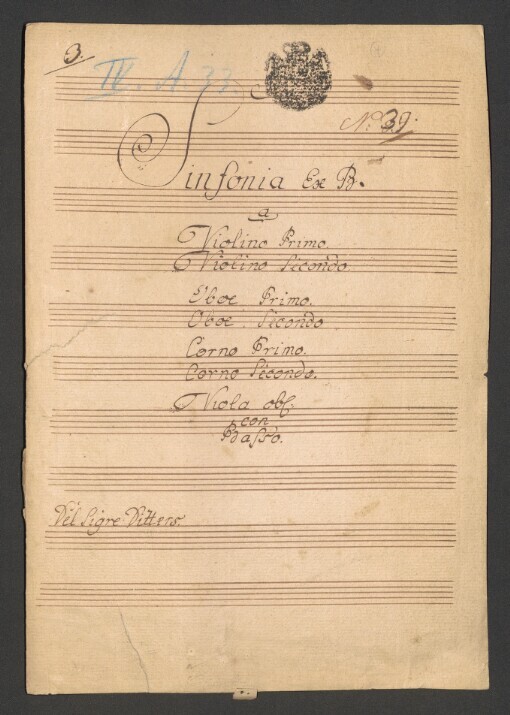 3.
IV. A. 33.
No: 39.
Sinfonia Ex B.
a
Violino Primo.
Violino Secondo.
Oboe Primo.
Oboe Secondo
Corno Primo.
Corno Secondo.
Viola obl.
con
Basso.
Del Sigre Ditters